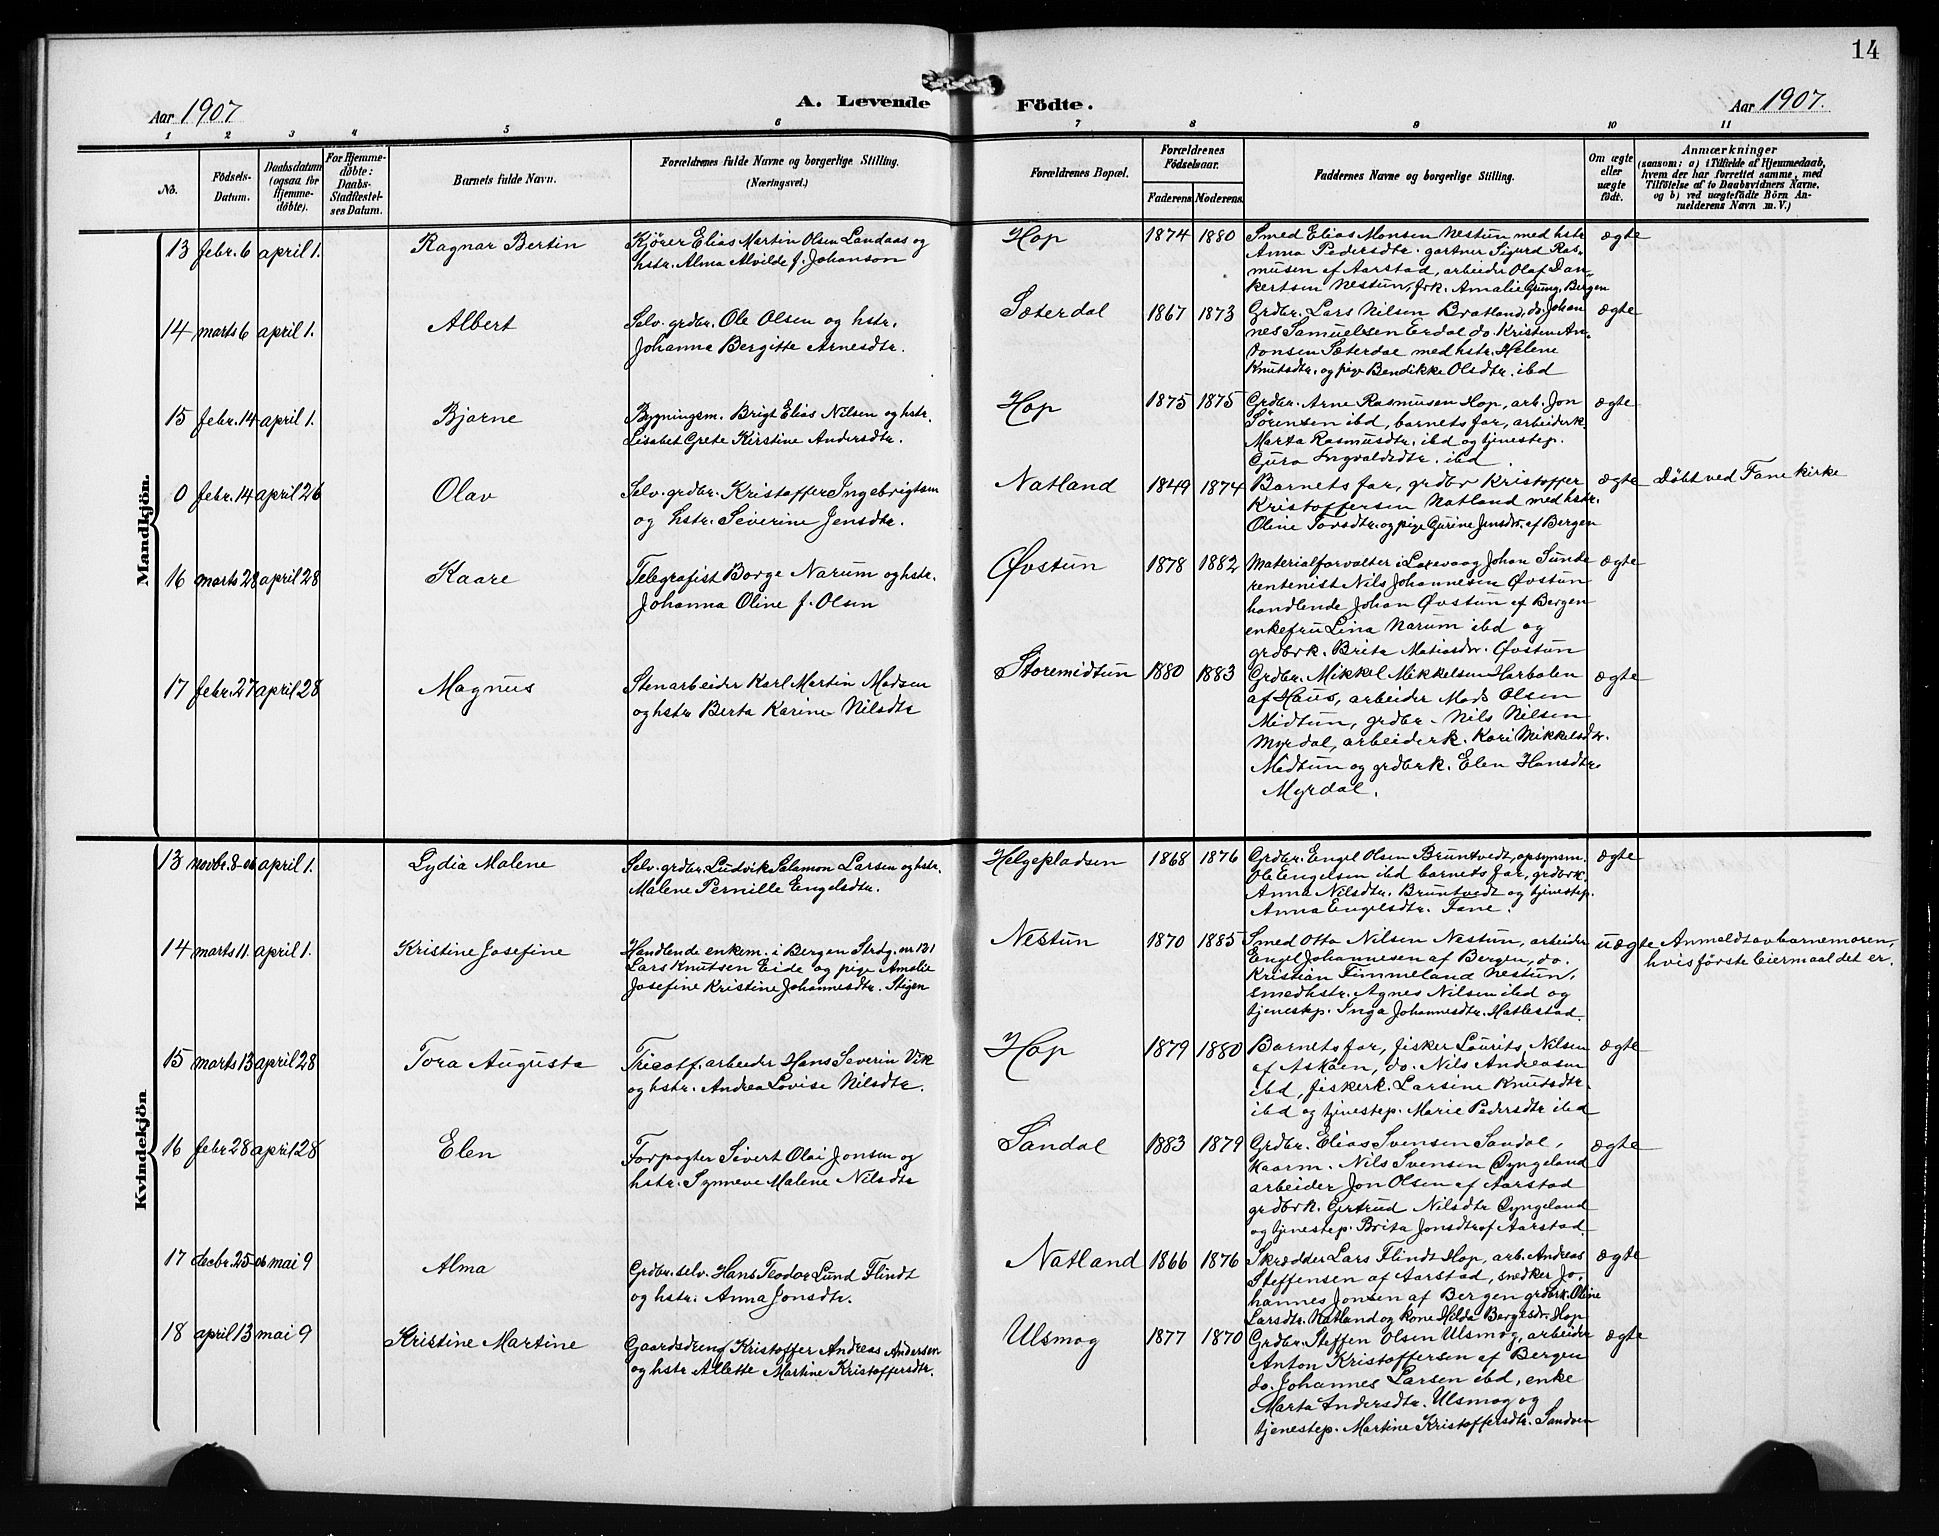 14
Aar 1907
A. Levende
Födte.
Aar 1907.
1 2 3 4 5 6 7 8 9 10 11
No.
Födsels-
Datum.
Daabsdatum
(ogsaa for
Hjemme-
döbte).
For Hjemme-
döbte:
Daabs-
Stadfæstel-
ses Datum.
Barnets fulde Navn.
Forældrenes fulde Navne og borgerlige Stilling.
(Næringsvei.)
Forældrenes Bopæl.
Forældrenes
Födselsaar.
Faderens
Moderens
Faddernes Navne og borgerlige Stilling.
Om ægte
eller
uægte
födt.
Anmærkninger
(saasom: a) i Tilfælde af Hjemmedaab,
hvem der har forrettet samme, med
Tilföielse af to Daabsvidners Navne.
og b) ved uægtefödte Börn An-
melderens Navn m. V.)
Mandkjön.
13 febr. 6 april 1. Ragnar Bertin
Kjører Elias Martin Olsen Landaas og
hstr. Alma Alvilde f. Johanson
Hop 1874 1880
Smed Elias Monsen Nestun med hstr
Anna Pedersdtr. gartner Sigurd Ras-
musen af Aarstad, arbeider Olaf Dan-
kertsen Nestun, frk. Amalie Grung, Bergen
ægte
14 marts 6 april 1. Albert
Selv. grdbr. Ole Olsen og hstr.
Johanna Bergitte Arnesdtr.
Sæterdal 1867 1873
Grdbr. Lars Nilsen Bratland, do. Johan
nes Samuelsen Erdal do. Kristen An-
tonsen Sæterdal med hstr. Helene
Knutsdtr. og pige Bendikke Olsdtr. ibd
ægte
15 febr. 14 april 1. Bjarne
Bygningsm. Brigt Elias Nilsen og hstr.
Lisabet Grete Kirstine Andersdtr.
Hop 1875 1875
Grdbr. Arne Rasmusen Hop, arb. Jon
Sörensen ibd, barnets far, arbeiderk.
Marta Rasmusdtr. ibd og tjenestep.
Guro Ingvaldsdtr. ibd.
ægte
0 febr. 14 april 26 Olav
Selv. grdbr. Kristoffer Ingebrigtsen
og hstr. Severine Jensdtr.
Natland 1849 1874
Barnets far, grdbr Kristoffer
Kristoffersen Natland med hstr.
Oline Torsdtr. og pige Gurine Jensdtr. af Bergen
ægte Döbt ved Fane kirke
16 marts 28 april 28 Kaare
Telegrafist Borge Narum og hstr.
Johanna Oline f. Olsen
Øvstun 1878 1882
Materialforvalter i Laxevaag Johan Sunde
rentenist Nils Johannesen Øvstun
handlende Johan Øvstun af Bergen
enkefru Lina Narum ibd og
grdbrk. Brita Matiasdtr. Øvstun
ægte
17 febr. 27 april 28 Magnus
Stenarbeider Karl Martin Madsen
og hstr Berta Karine Nilsdtr
Storemidtun 1880 1883
Grdbr. Mikkel Mikkelsen Harbalen
af Haus, arbeider Mads Olsen
Midtun, grdbr. Nils Nilsen
Myrdal, arbeiderk. Kari Mikkelsdtr.
Midtun og grdbrk. Elen Hansdtr
Myrdal.
ægte
Kvindekjön
13 novbr. 8-06 april 1. Lydia Malene
Selv. grdbr. Ludvik Salamon Larsen og hstr.
Malene Pernille Engelsdtr.
Helgepladsen 1868 1876
Grdbr. Engel Olsen Bruntvedt, opsynsm.
Ole Engelsen ibd barnets far, grdbrk.
Anna Nilsdtr. Bruntvedt og tjenestep.
Anna Engelsdtr. Fane.
ægte
14 marts 11. april 1. Kristine Josefine
Handlende enkem. i Bergen Strdg. nr 131
Lars Knutsen Eide og pige Amalie
Josefine Kristine Johannesdtr. Stigen
Nestun 1870 1885
Smed Otto Nilsen Nestun, arbeider
Engel Johannesen af Bergen, do.
Kristian Fimmeland Nestun,
smedhstr. Agnes Nilsen ibd og
tjenestep. Inga Johannesdtr. Hatlestad.
uægte Anmeldt av barnemoren,
hvis förste leiermaal det er.
15 marts 13 april 28 Tora Augusta
Tricotf. arbeider Hans Severin Vik
og hstr. Andrea Lovise Nilsdtr.
Hop 1879 1880
Barnets far, fisker Laurits Nilsen
af Askøen, do. Nils Andreasen
ibd, fiskerk. Larsine Knutsdtr.
ibd og tjenestep. Marie Pedersdtr ibd
ægte
16 febr 28 april 28 Elen
Forpagter Sivert Olai Jonsen og
hstr. Synneve Malene Nilsdtr
Sandal 1883 1879
Grdbr. Elias Svensen Sandal,
kaarm. Nils Svensen Øyngeland
arbeider Jon Olsen af Aarstad
grdbrk. Gertrud Nilsdtr Øyngeland
og tjenestep. Brita Jonsdtr af Aarstad.
ægte
17 decbr. 25-06 mai 9 Alma
Grdbr. selv. Hans Teodor Lund Flindt
og hstr. Anna Jonsdtr.
Natland 1866 1876
Skrædder Lars Flindt Hop, arb. Andreas
Steffensen af Aarstad, snedker Jo-
hannes Jonsen af Bergen grdbrk. Oline
Larsdtr. Natland og kone Hilda Bergesdtr. Hop
ægte
18 april 13 mai 9 Kristine Martine
Gaardsdreng Kristoffer Andreas Andersen
og hstr Allette Martine Kristoffersdtr.
Ulsmog 1877 1870
Grdbr. Steffen Olsen Ulsmog, arbeider
Anton Kristoffersen af Bergen
do. Johannes Larsen ibd, enke
Marta Andersdtr. Ulsmog og
tjenestep. Martine Kristoffersdtr. Sandven
ægte